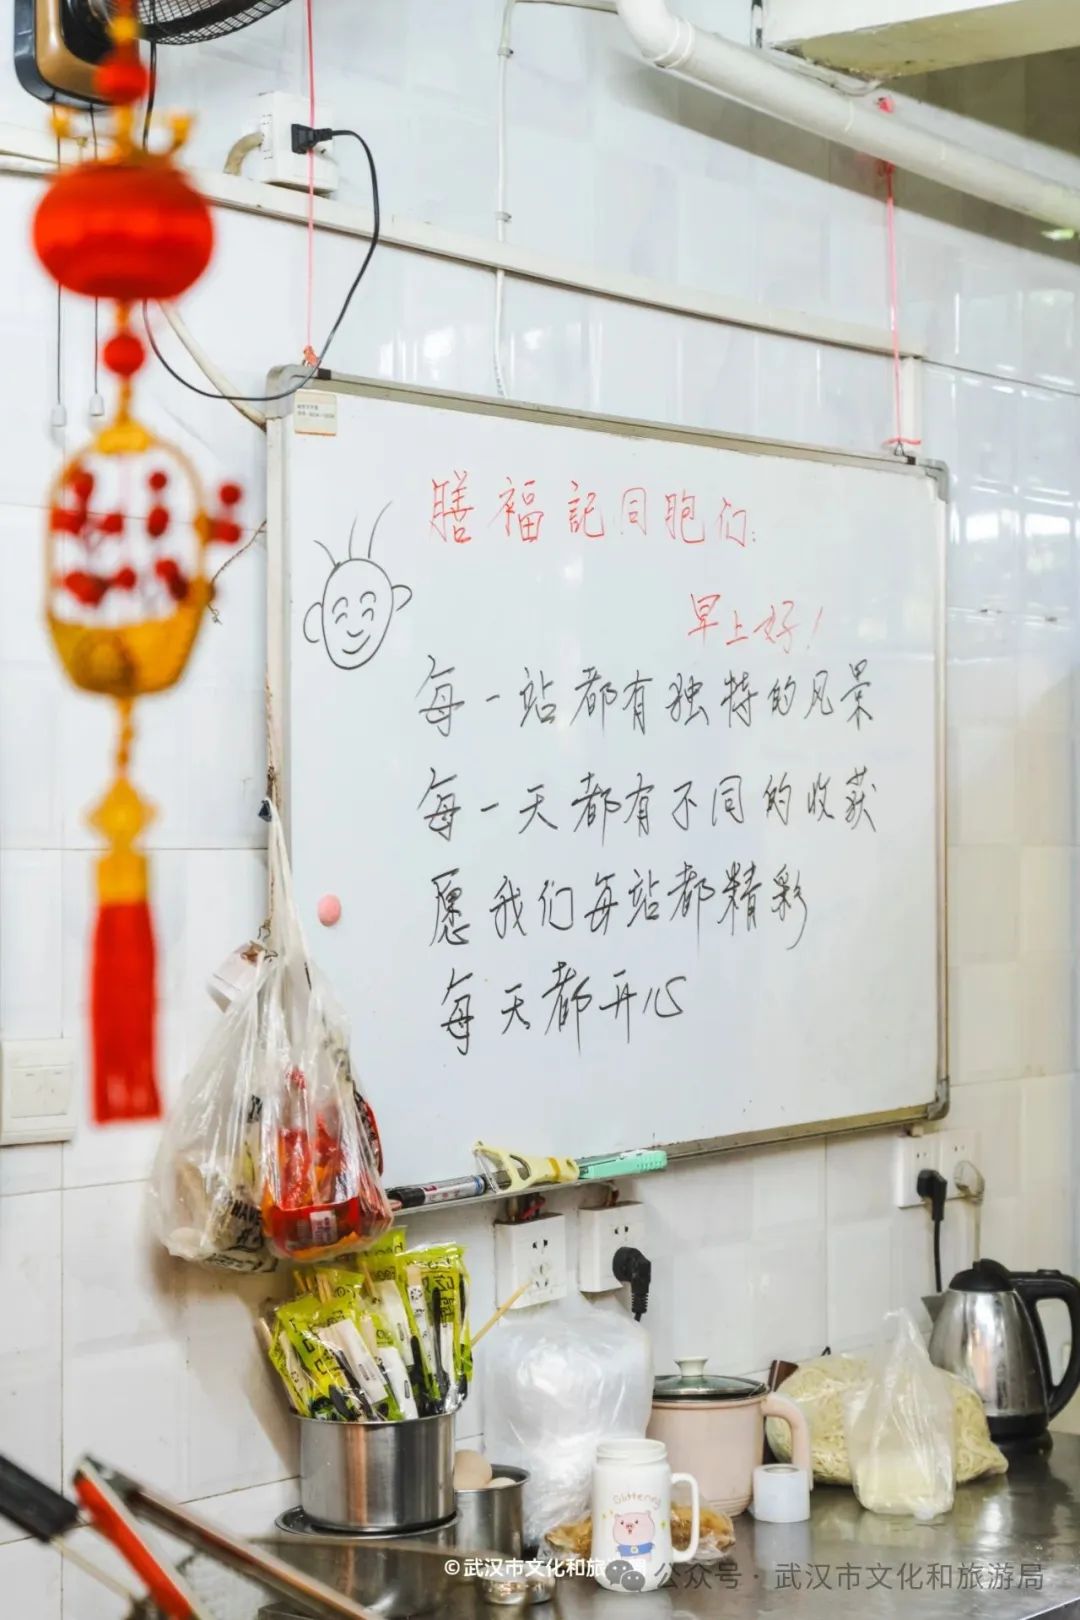 膳福記同胞们:
早上好!
每一站都有独特的风景
每一天都有不同的收获
愿我们每站都精彩
每天都开心
Glittering
©武汉市文化和旅游
公众号·武汉市文化和旅游局